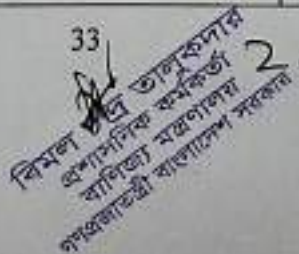 33
2
বিমল চন্দ্র তালুকদার
প্রশাসনিক কর্মকর্তা
বাণিজ্য মন্ত্রণালয়
গণপ্রজাতন্ত্রী বাংলাদেশ সরকার